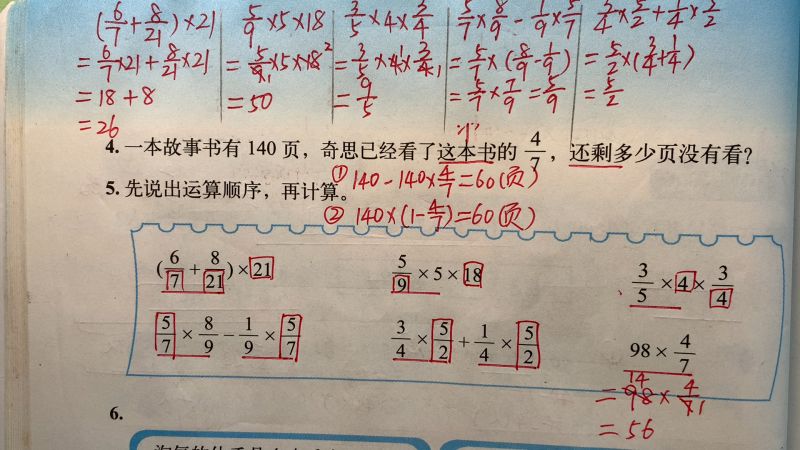 (6/7+8/21)×21
=6/7×21+8/21×21
=18+8
=26
5/9×5×18
=5/9×5×18
=50
3/5×4×3/4
=3/5×4×3/4
=9/5
5/7×8/9-1/9×5/7
=5/7×(8/9-1/9)
=5/7×7/9=5/9
3/4×5/2+1/4×5/2
=5/2×(3/4+1/4)
=5/2
4. 一本故事书有 140 页，奇思已经看了这本书的 4/7，还剩多少页没有看？
① 140-140×4/7=60(页)
5. 先说出运算顺序，再计算。
② 140×(1-4/7)=60(页)
(6/7+8/21)×21 5/9×5×18 3/5×4×3/4
5/7×8/9-1/9×5/7 3/4×5/2+1/4×5/2 98×4/7
=98×4/7
=56
6.